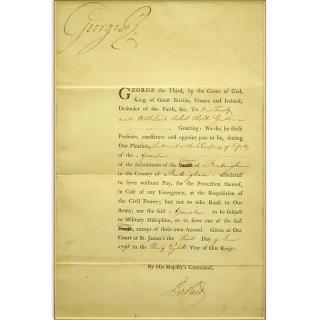 George R.
GEORGE the Third, by the Grace of God,
King of Great Britain, France and Ireland,
Defender of the Faith, &c. To Our Trusty
and Gentleman
Greeting: We do, by these
Presents, constitute and appoint you to be, during
Our Pleasure, Lieutenant in a Company of
of the Association
of the Inhabitants of the of Buckingham
in the County of Buckingham associated
to serve without Pay, for the Protection thereof,
in Case of any Emergency, at the Requisition of
the Civil Power; but not to take Rank in Our
Army, nor the said Association to be subject
to Military Discipline, or to serve out of the said
except of their own Accord. Given at Our
Court at St. James's the First Day of June
1798 in the Thirty Eighth Year of Our Reign.
By His Majesty's Command,
Portland